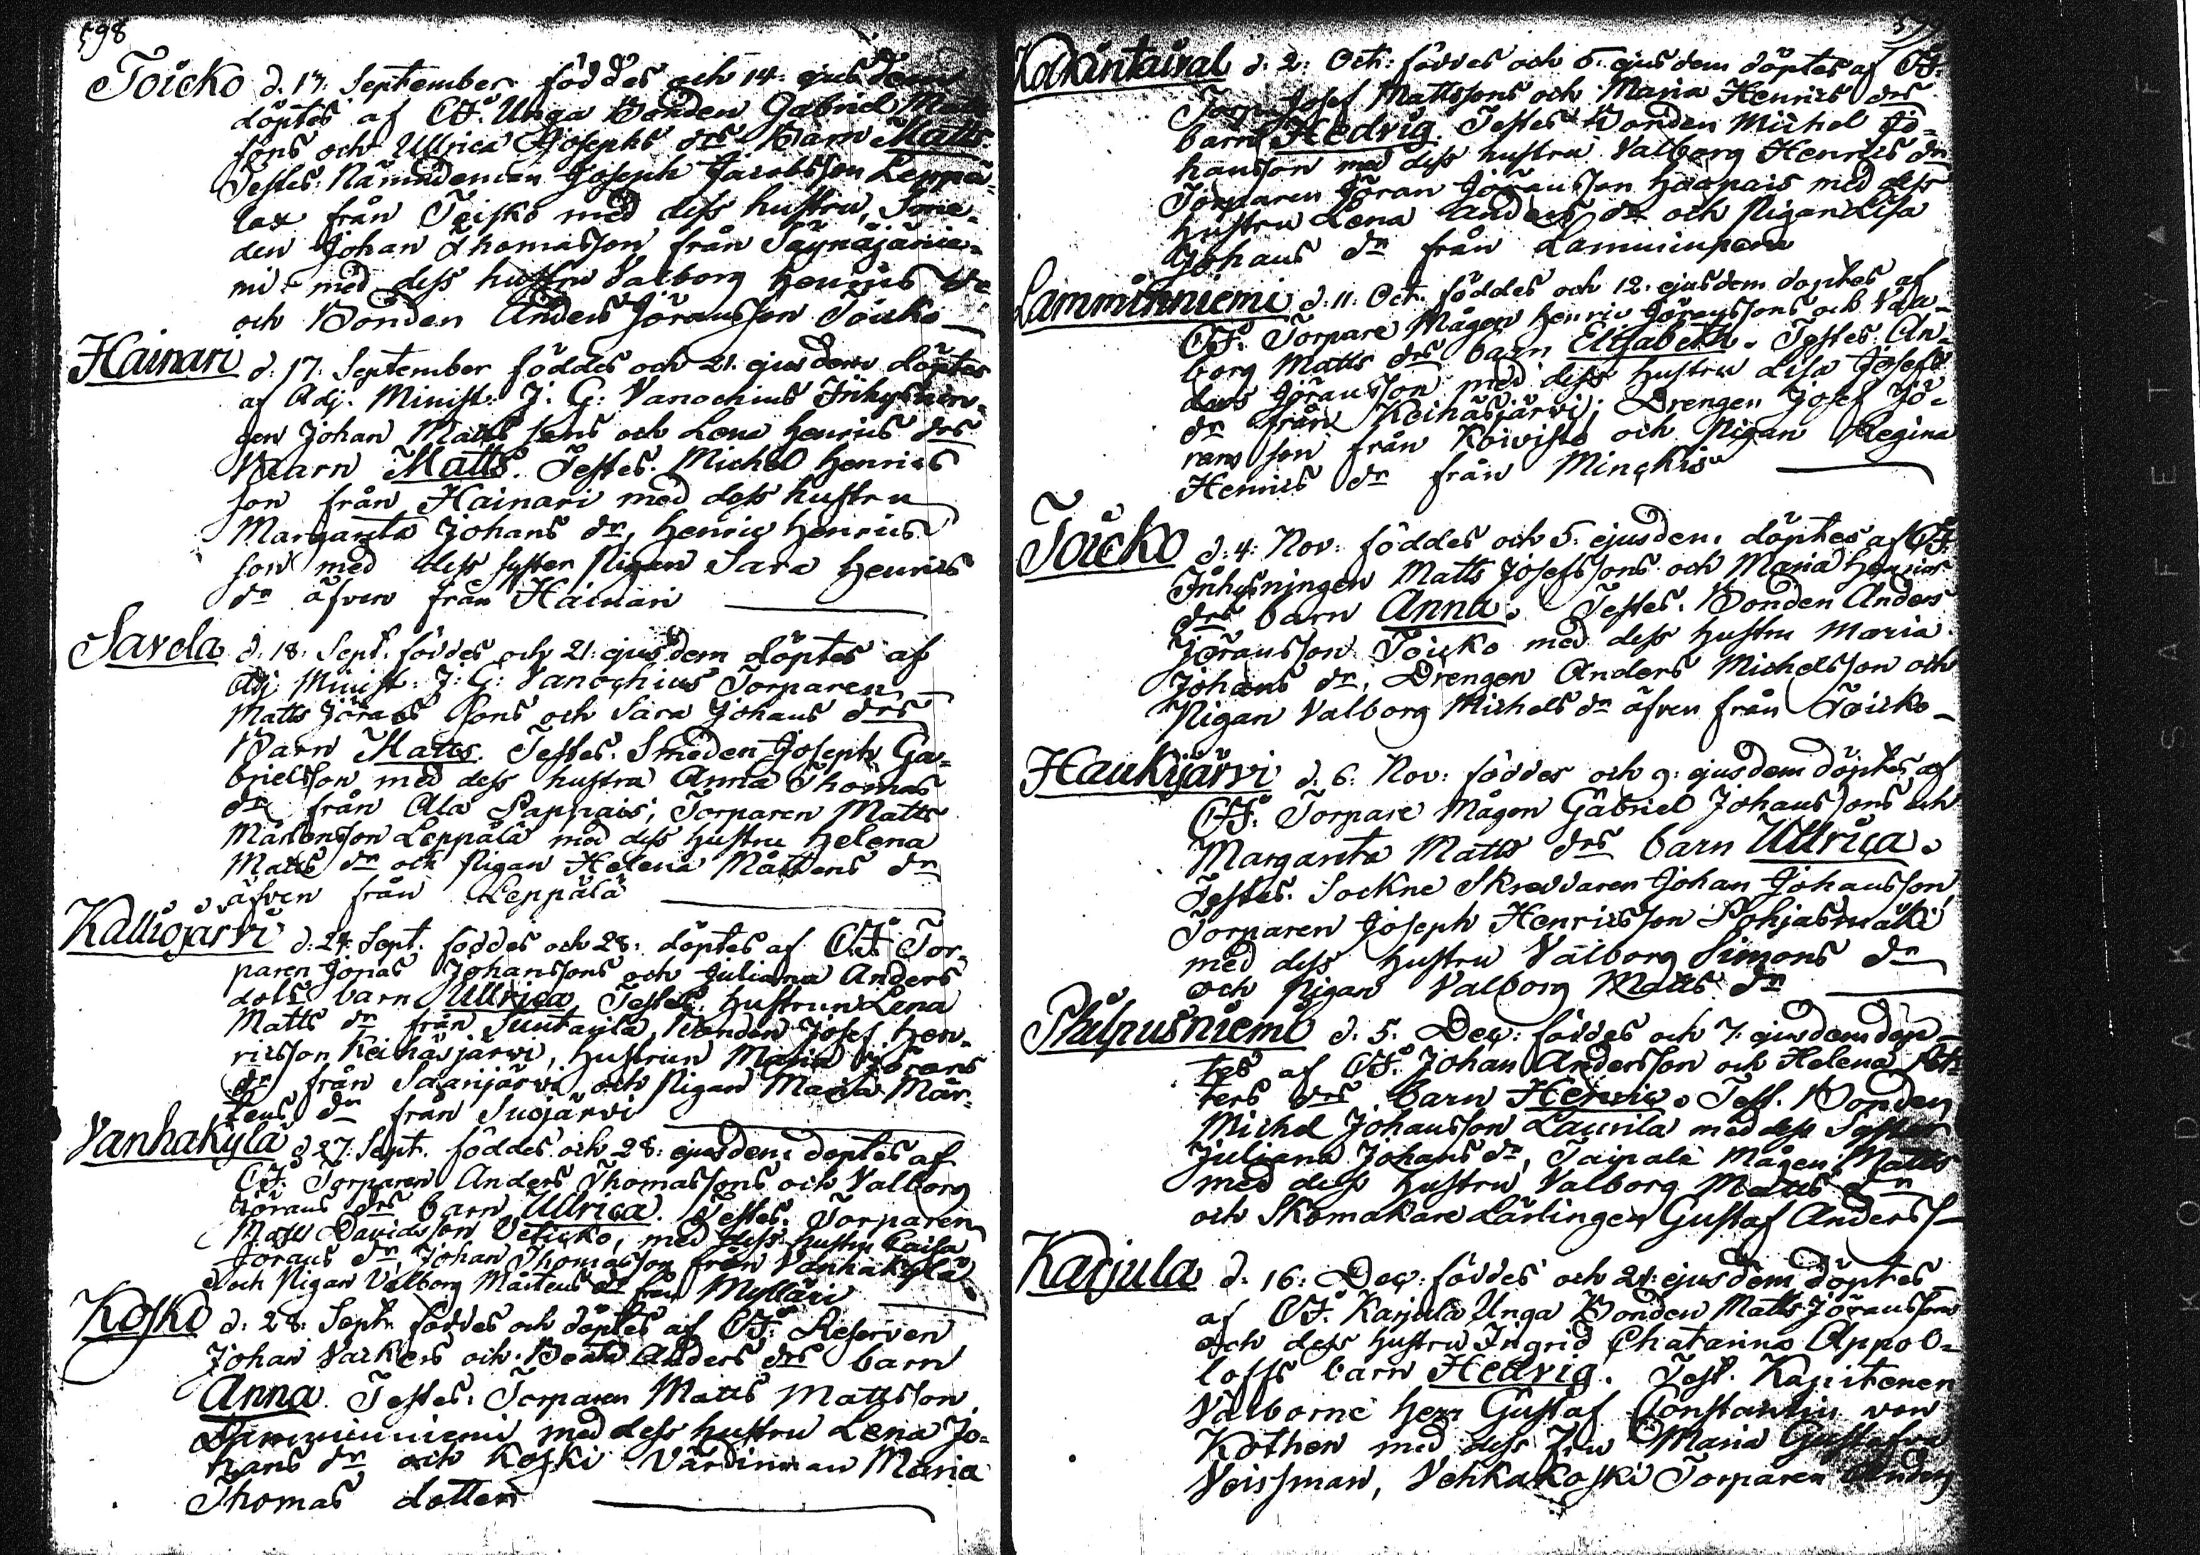 598
Toicko d. 13. September föddes och 14 ejusdem
döptes af Unga Bonden Gabriel Matts
sons och Ullrica Josephs drs Barn Matts
Testes: Nämndeman Joseph Jacobsson Leppä-
lax från Teisko med dess hustru, Sme-
den Johan Thomasson från Säynäjänie-
mi med dess hustru Valborg Henrics dr
och Bonden Anders Jöransson Toicko
Hainari d. 17. September föddes och 21. ejusdem döptes
af Adj. Minist. J. G. Vanochius Inhysnin-
gen Johan Matts sons och Lena Henrics drs
Baarn Matts. Testes. Michel Henrics
son från Hainari med dess hustru
Margareta Johans dr, Henric Henrics
son med dess syster Pigan Sara Henrics
dr äfven från Hainari
Savela d. 18. Sept. föddes och 21. ejusdem döptes af
Adj Minist. J. G. Vanochius Torparen
Matts Jörans sons och Sara Johans drs
Barn Matts. Testes. Smeden Joseph Ga-
brielsson med dess hustru Anna Thomas
dr från Ala Pappais; Torparen Matts
Mårtensson Leppälä med dess hustru Helena
Matts dr och Pigan Helena Mårtens dr
äfven från Leppälä
Kalliojärvi d. 24. Sept. föddes och 28. döptes af Tor-
paren Jonas Johanssons och Juliana Anders
dotr barn Ullrica Testes: hustrun Lena
Matts dr från Suntaula, Bonden Josef Hen-
ricsson Keihäsjärvi, hustrun Maria Jörans
dr från Saarijärvi och Pigan Maria Mår-
tens dr från Suojärvi
Vanhakylä d 27. Sept. föddes och 28. ejusdem döptes af
Torparen Anders Thomassons och Valborg
Jörans drs barn Ullrica. Testes. Torparen
Matts Davidsson Veticko, med dess hustru Caisa
Jörans dr, Johan Thomasson från Vanhakylä
och Pigan Valborg Mårtens dr från Mylläri
Koski d. 28. Septr. föddes och döptes af Reserven
Johan Varkers och Beata Anders drs barn
Anna. Testes: Torparen Matts Mattsson
Lamminniemi med dess hustru Lena Jo-
hans dr och Koski Värdinnan Maria
Thomas dotter
d. 2. Oct. föddes och 5. ejusdem döptes af
Josef Mattssons och Maria Henrics drs
barn Hedvig. Testes Bonden Michel Jo-
hansson med dess hustru Valborg Henrics dr
Torparen Jöran Jöransson Haapais med dess
hustru Lena Anders dr och Pigan Lisa
Johans dr från Lamminperä
Lamminniemi d. 11. Oct. föddes och 12. ejusdem döptes af
Torpare Mågen Henric Göranssons och Val-
borg Matts drs barn Elisabeth. Testes. An-
ders Jöransson med dess hustru Lisa Josefs
dr från Keihäsjärvi; Drengen Josef Jö-
ransson från Koivisto och Pigan Regina
Henrics dr från Minckis
Toicko d. 4. Nov. föddes och 5. ejusdem döptes af
Inhysningen Matts Josefssons och Maria Henrics
drs barn Anna. Testes. Bonden Anders
Jöransson Toicko med dess hustru Maria
Johans dr, Drengen Anders Michelsson och
Pigan Valborg Michels dr äfven från Toicko
Haukijärvi d. 6. Nov. föddes och 9. ejusdem döptes af
Torpare Mågen Gabriel Johanssons och
Margareta Matts drs barn Ullrica.
Testes. Sockne Skreddaren Johan Johansson
Torparen Joseph Henricsson Pohjasmäki
med dess hustru Valborg Simons dr
och Pigan Valborg Matts dr
Philpusniemi d. 5. Dec. föddes och 7. ejusdem döp-
tes af Johan Andersson och Helena Pet-
ters drs barn Henric. Test. Bonden
Michel Johansson Laurila med dess Syster
Juliana Johans dr, Taipale Mågen Matts
med dess hustru Valborg Matts dr
och Skomakare Lärlingen Gustaf Anderss
Karjula d. 16. Dec. föddes och 21. ejusdem döptes
af Karjula Unga Bonden Matts Jöranssons
och dess hustru Ingrid Chatarina Appo
loffs barn Hedvig. Test. Kapitenen
Välborne Herr Gustaf Constantin von
Kothen med dess Fru Maria Gustafva
Veissman, Vehkakoski Torparen Anders
KODAK SAFETY F